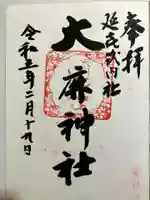 奉拝
延喜式内社
大麻神社
令和三年二月十九日